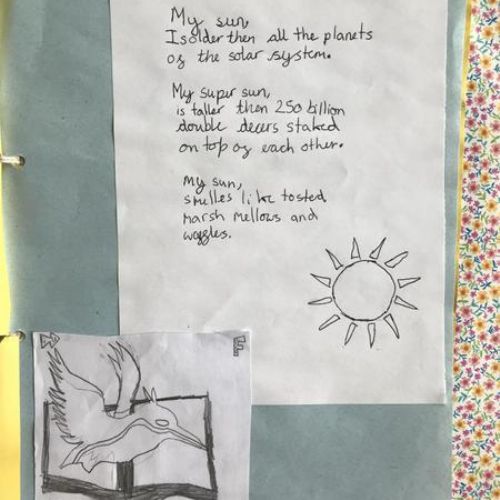 My sun,
Isolder then all the planets
og the solar system.
My super sun,
is taller then 250 billion
double decers staked
on top og each other.
My sun,
smelles like tosted
marsh mellows and
waffles.
R F